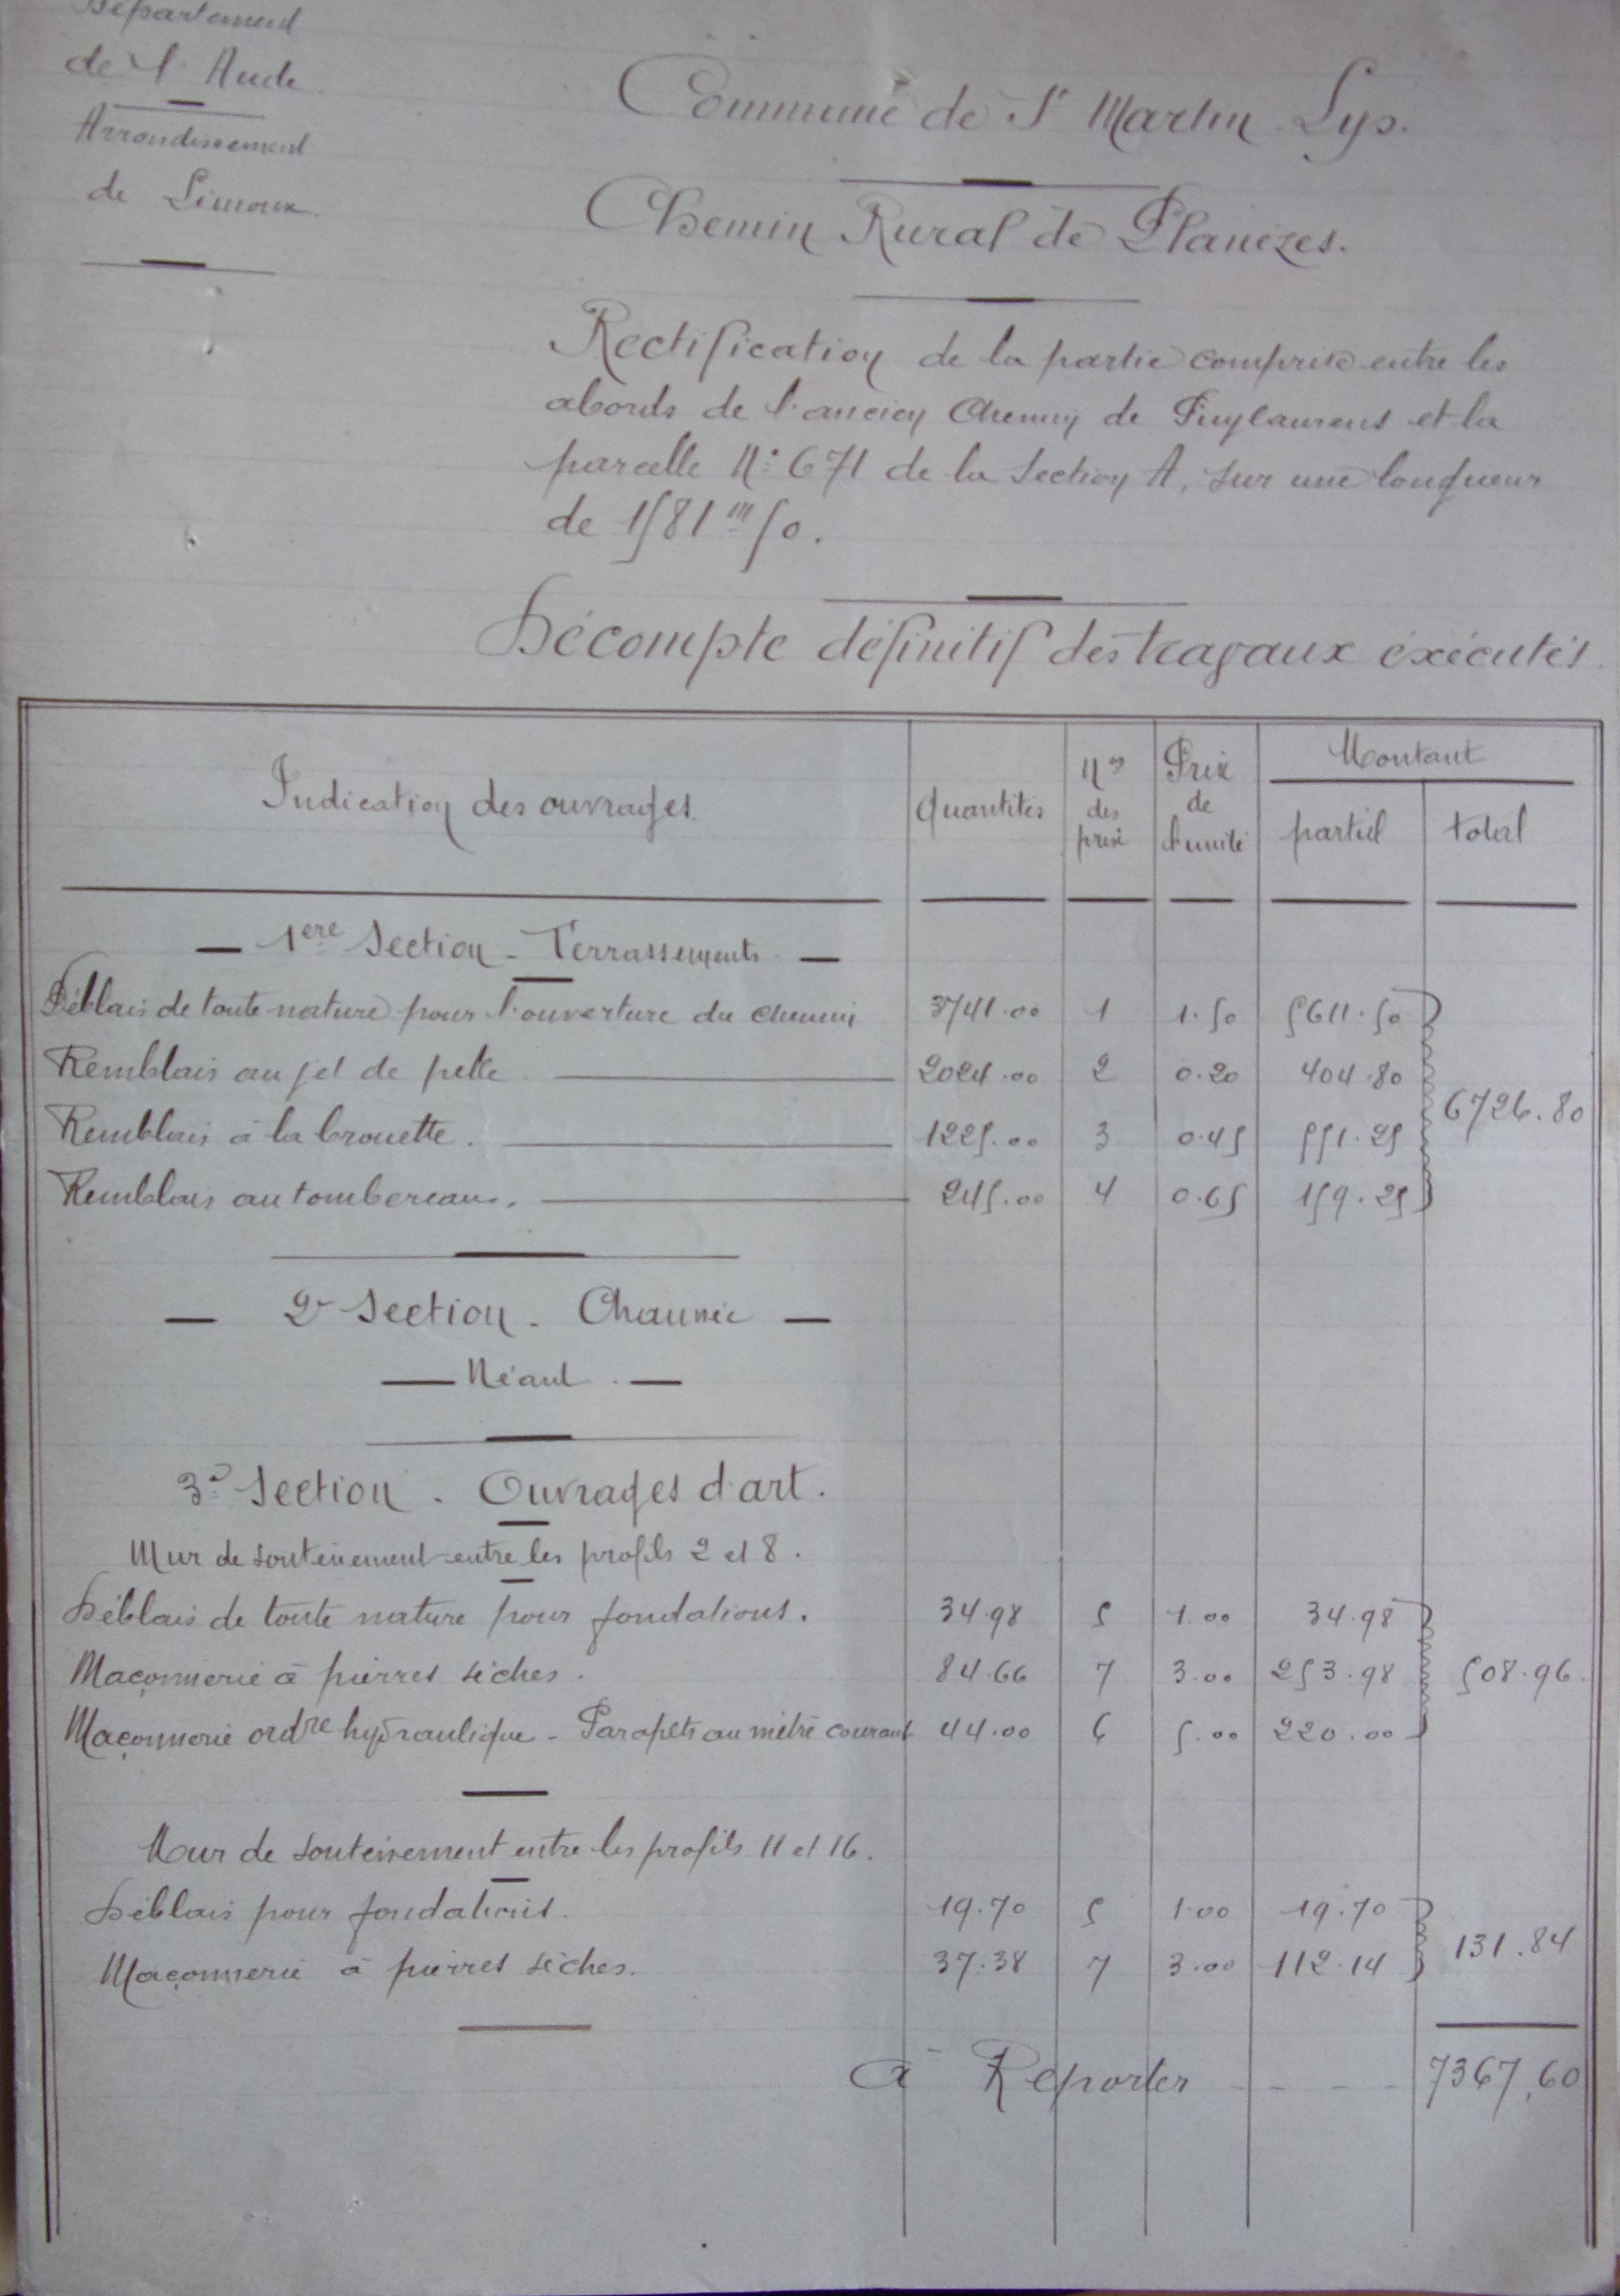 Département
de l'Aude
Arrondissement
de Limoux
Commune de St Martin Lys.
Chemin Rural de Planèzes.
Rectification de la partie comprise entre les
abords de l'ancien Chemin de Puylaurens et la
parcelle N° 671 de la Section A, sur une longueur
de 1581m50.
Décompte définitif des travaux exécutés
Indication des ouvrages Quantités Nos des prix Prix de l'unité Montant partiel total
1ère Section - Terrassements
Déblais de toute nature pour l'ouverture du chemin 3741.00 1 1.50 5611.50
Remblais au jet de pelle 2024.00 2 0.20 404.80
6726.80
Remblais à la brouette. 1225.00 3 0.45 551.25
Remblais au tombereau. 245.00 4 0.65 159.25
2e Section - Chaussée
Néant
3e Section. Ouvrages d'art.
Mur de soutènement entre les profils 2 et 8.
Déblais de toute nature pour fondations. 34.98 5 1.00 34.98
Maçonnerie à pierres sèches. 84.66 7 3.00 253.98 508.96
Maçonnerie ordre hydraulique - Parapets au mètre courant 44.00 6 5.00 220.00
Mur de soutènement entre les profils 11 et 16.
Déblais pour fondations. 19.70 5 1.00 19.70
131.84
Maçonnerie à pierres sèches. 37.38 7 3.00 112.14
à Reporter - - - - 7367,60